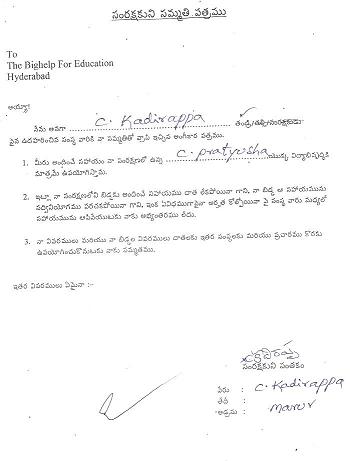 సంరక్షకుని సమ్మతి పత్రము
To
The Bighelp For Education
Hyderabad
అయ్యా!
నేను అనగా C. Kadirappa తండ్రి/తల్లి/సంరక్షకుడు
పైన ఉదహరించిన సంస్థ వారికి నా సమ్మతితో వ్రాసి ఇచ్చిన అంగీకార పత్రము.
1. మీరు అందించే సహాయం నా సంరక్షణలో ఉన్న C. pratyusha యొక్క విద్యాభివృద్ధికి
మాత్రమే ఉపయోగిస్తాను.
2. ఇట్లా నా సంరక్షణలోని బిడ్డకు అందించే సహాయము దాత లేకపోయినా గాని, నా బిడ్డ ఆ సహాయమును
సద్వినియోగము పరచకపోయినా గాని, ఇంక ఏవిధముగానైనా అర్హత కోల్పోయినా పై సంస్థ వారు మధ్యలో
సహాయమును ఆపివేయుటకు నాకు అభ్యంతరము లేదు.
3. నా వివరములు మరియు నా బిడ్డల వివరములు దాతలకు ఇతర సంస్థలకు మరియు ప్రచారము కొరకు
ఉపయోగించుకొనుటకు నాకు సమ్మతము.
ఇతర వివరములు ఏమైనా :-
సంరక్షకుని సంతకం
పేరు : C. Kadirappa
తేదీ :
అడ్రసు : marur